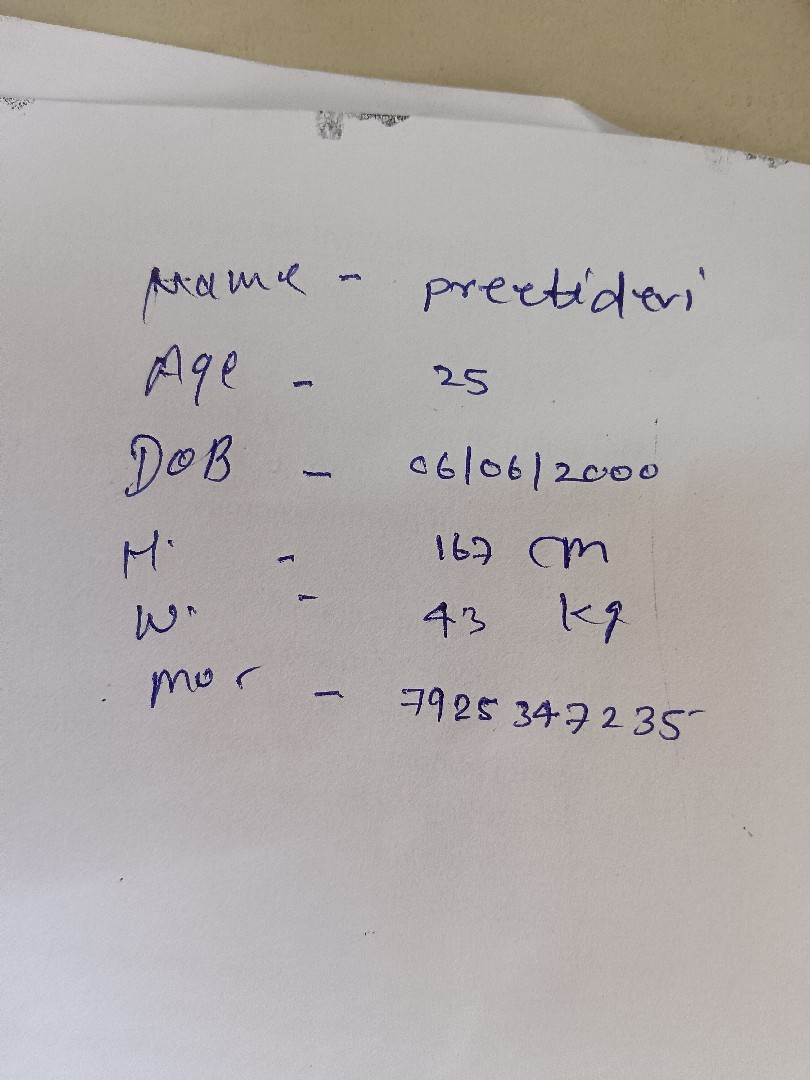 Name - preetideri
Age - 25
DOB - 06/06/2000
H. - 167 cm
W. - 43 kg
mor - 7925347235